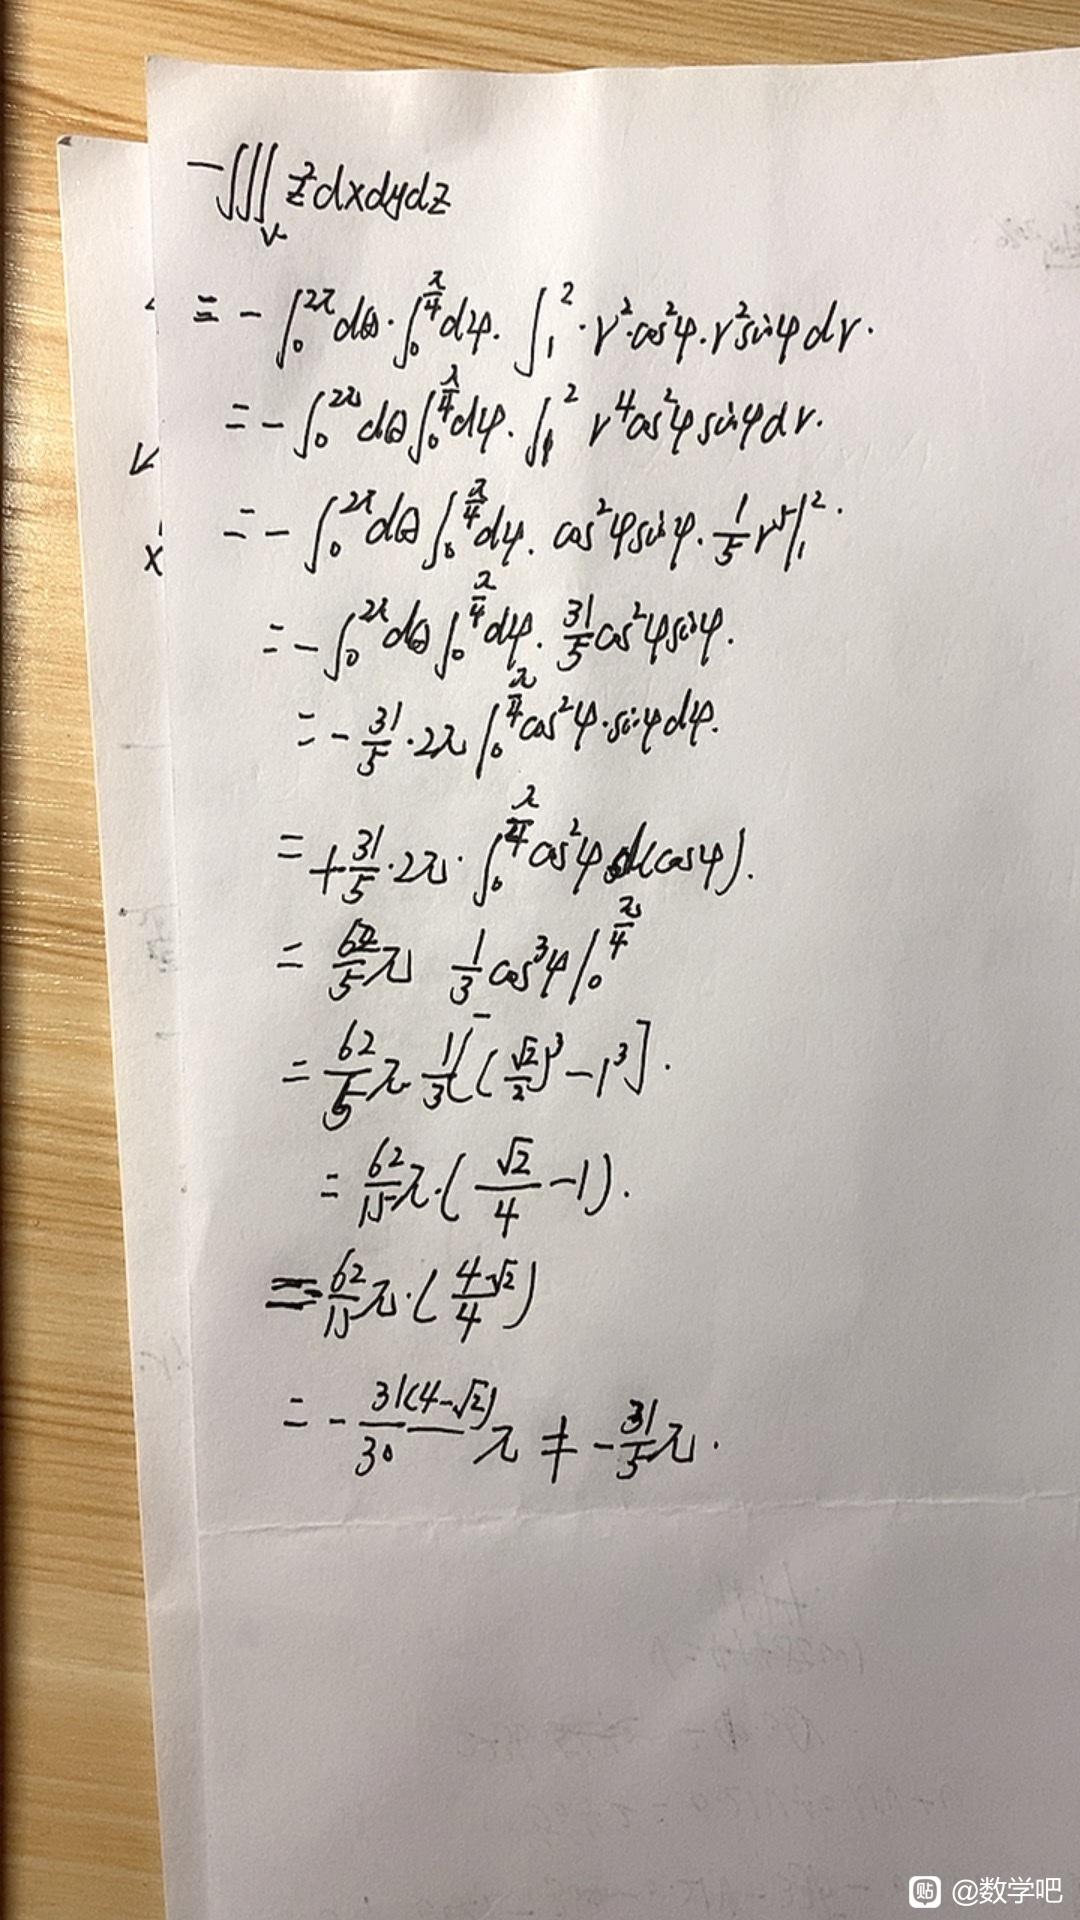 -∭_V z²dxdydz
= -∫₀^{2π}dθ·∫₀^{π/4}dφ·∫₁²·r²·cos²φ·r²sinφdr.
= -∫₀^{2π}dθ∫₀^{π/4}dφ·∫₁² r⁴cos²φsinφdr.
= -∫₀^{2π}dθ∫₀^{π/4}dφ. cos²φsinφ·1/5 r⁵|₁².
= -∫₀^{2π}dθ∫₀^{π/4}dφ. 31/5 cos²φsinφ.
= -31/5·2π∫₀^{π/4}cos²φ·sinφdφ.
= +31/5·2π·∫₀^{π/4}cos²φd(cosφ).
= 62/5π 1/3cos³φ|₀^{π/4}
= 62/5π·1/3[(√2/2)³-1³].
= 62/15π·(√2/4-1).
=-62/15π·(4-√2/4)
= -31(4-√2)/30 π ≠ -31/5π.
V
x
贴 @数学吧